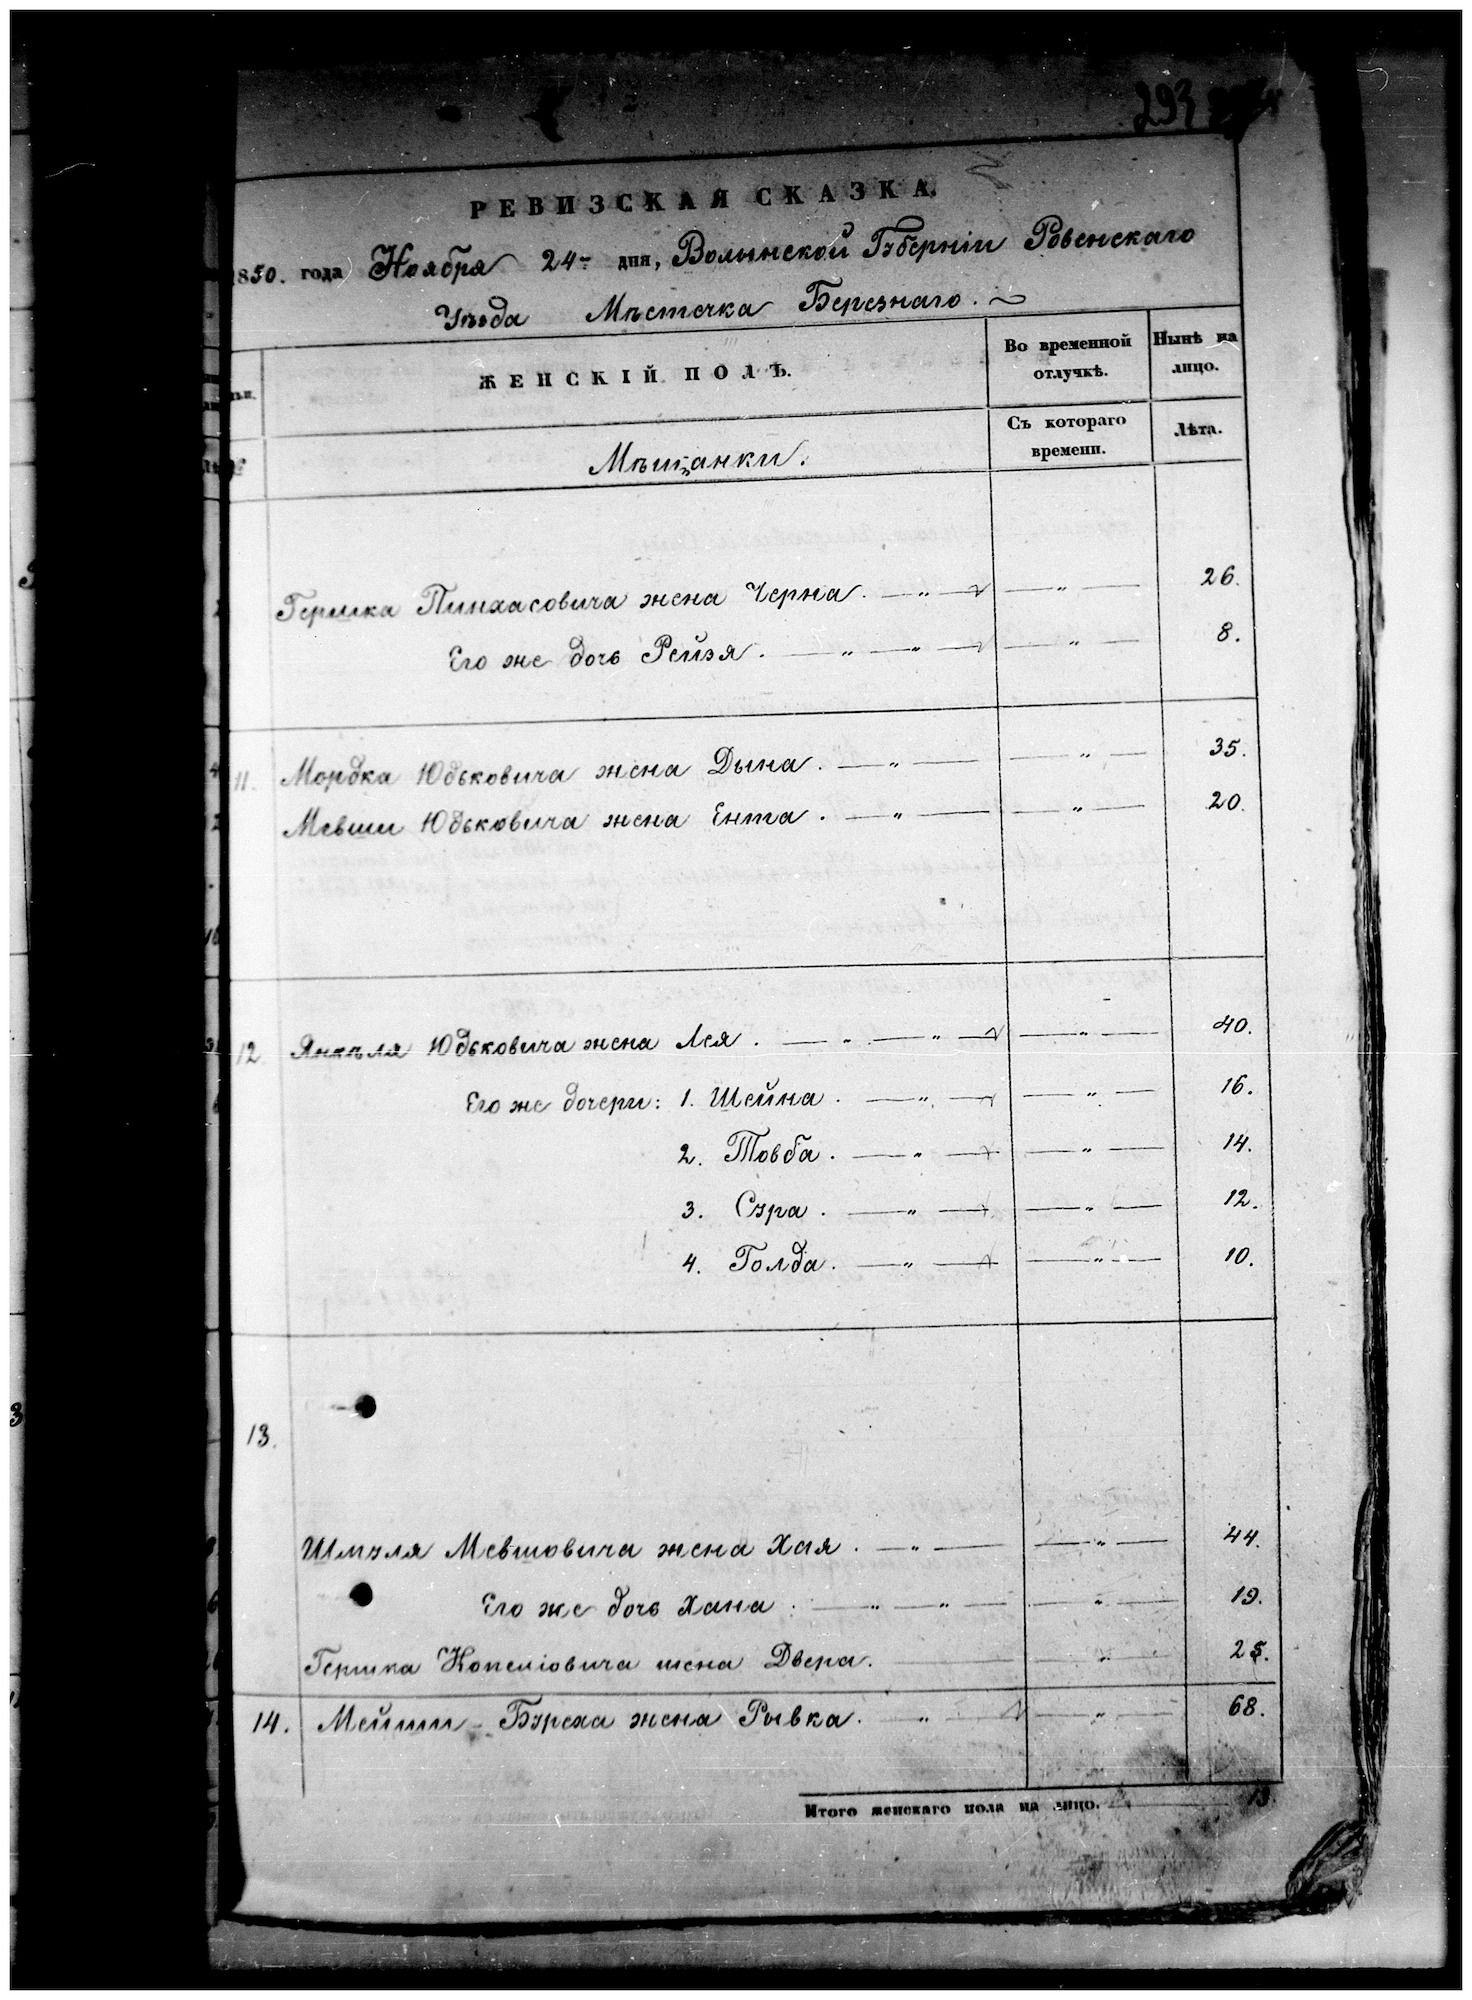 293
РЕВИЗСКАЯ СКАЗКА.
1850. года Ноября 24 дня, Волынской Губерніи Ровенскаго
Уѣзда Мѣстечка Березнаго.
ЖЕНСКІЙ ПОЛЪ.
Во временной отлучкѣ.
Нынѣ на лицо.
Мѣщанки.
Съ котораго времени.
Лѣта.
Гершка Пинхасовича жена Черна. — „ — — „ — 26.
Его же дочь Рейзя. — „ — „ — — „ — 8.
11. Мордка Юдьковича жена Дына. — „ — — „ — 35.
Мевши Юдьковича жена Ента. — „ — — „ — 20.
12 Янкѣля Юдьковича жена Лея. — „ — „ — — „ — 40.
Его же дочери: 1. Шейна. — „ — — „ — 16.
2. Товба. — „ — — „ — 14.
3. Сура. — „ — — „ — 12.
4. Голда. — „ — — „ — 10.
13.
Шмуля Мевшовича жена Хая. — „ — — „ — 44.
Его же дочь Хана. — „ — „ — — „ — 19.
Гершка жена Двера. — — „ — 25.
14. Мейши-Бэреха жена Рывка. — „ — — „ — 68.
Итого женскаго пола на лицо. — 13